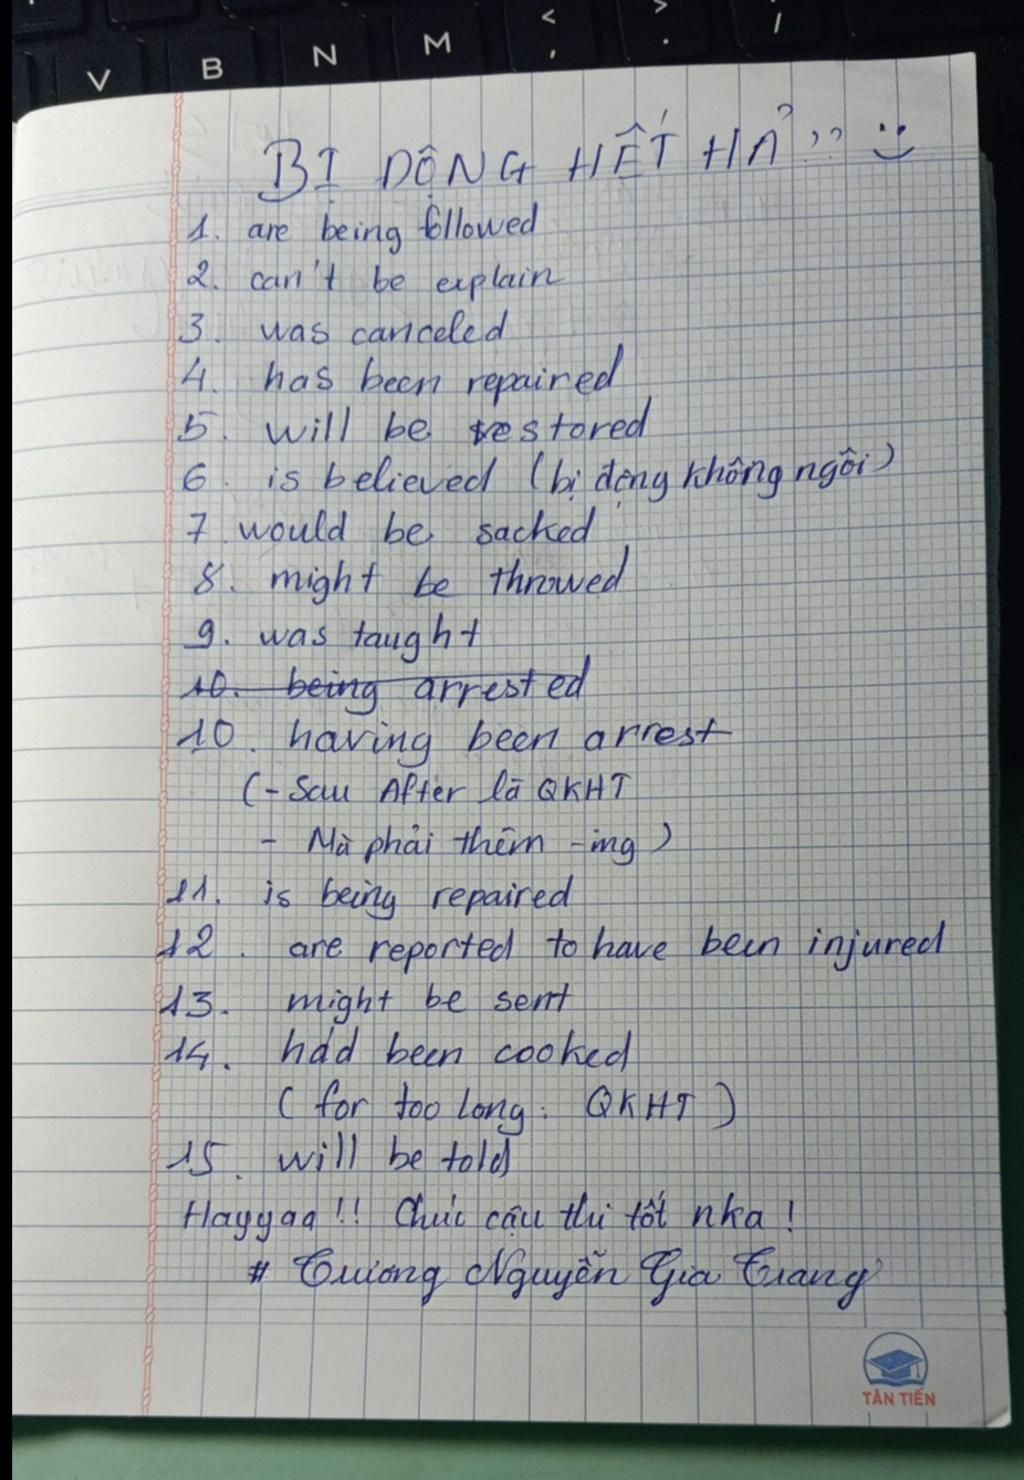 V B N M < , > . /
BỊ DỘNG HẾT HẢ ?? :)
1. are being followed
2. can't be explain
3. was canceled
4. has been repaired
5. will be restored
6. is believed (bị động không ngôi)
7 would be sacked
8. might be throwed
9. was taught
10. being arrested
10. having been arrest
(- Sau After là QKHT
- Mà phải thêm -ing)
11. is being repaired
12. are reported to have been injured
13. might be sent
14. had been cooked
(for too long: QKHT)
15. will be told
Hayyaa!! Chúc cậu thi tốt nka!
# Trương Nguyễn Gia Trang
TÂN TIẾN